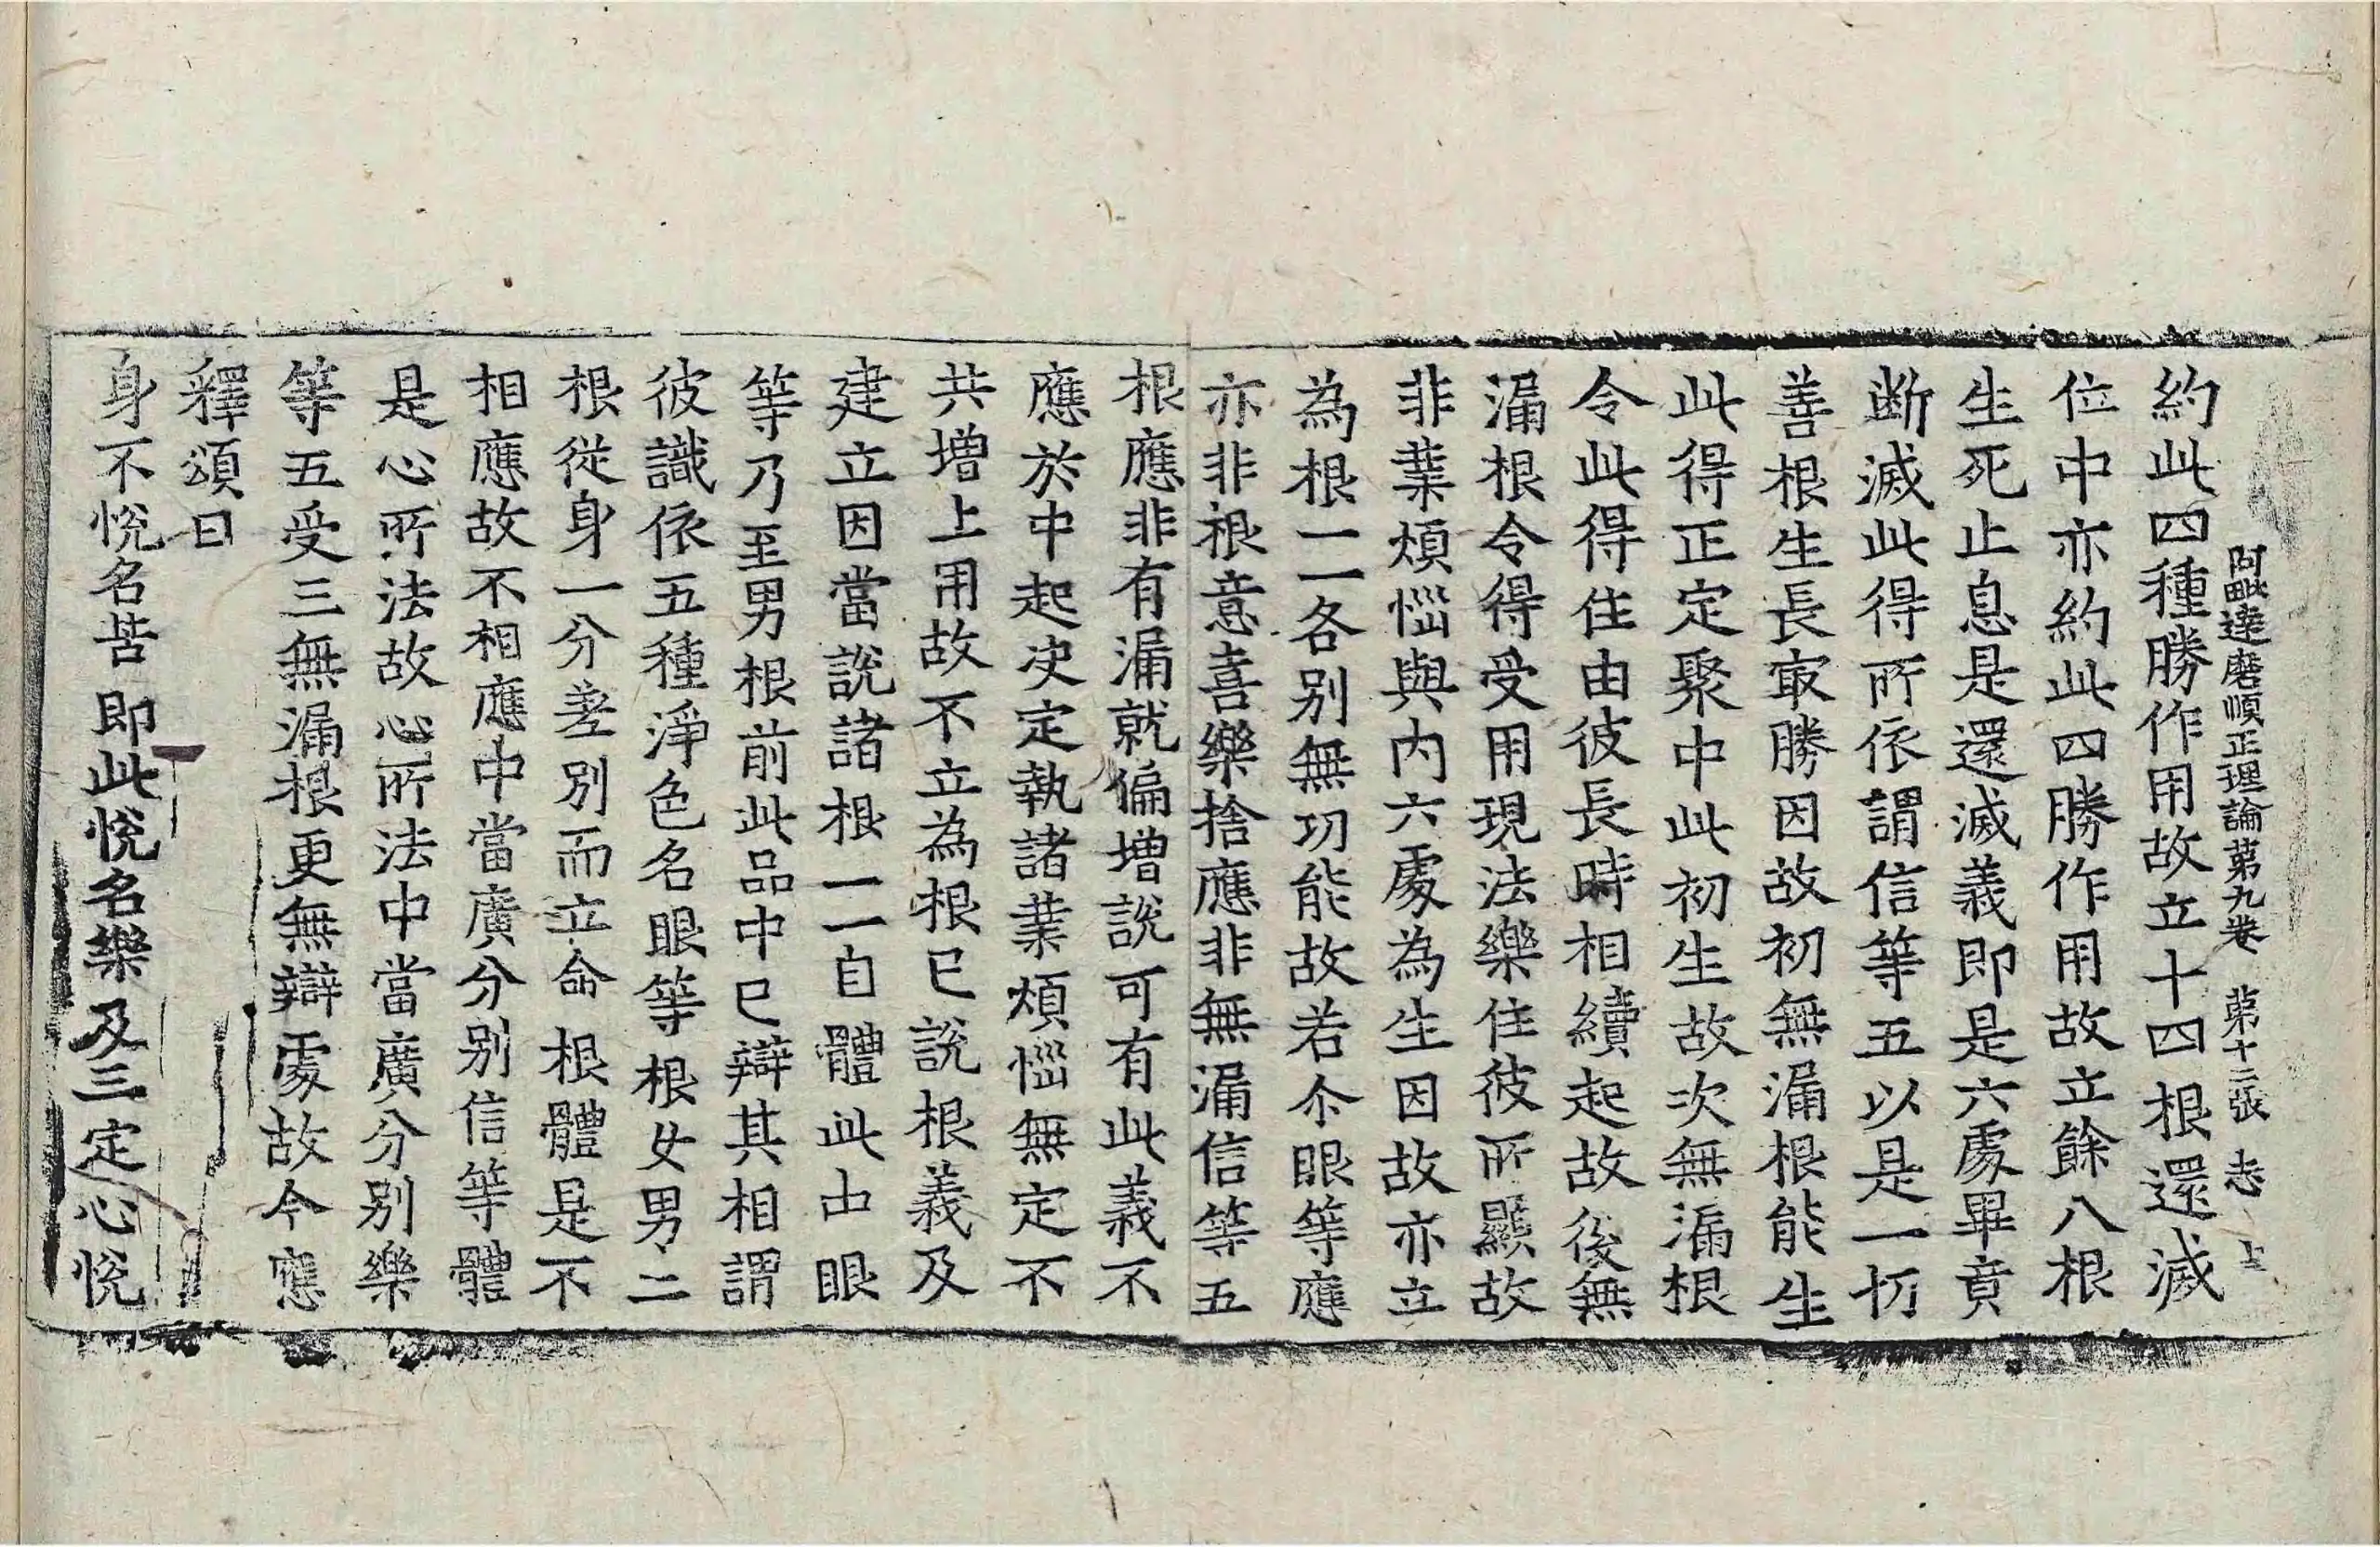 阿毗達磨順正理論第九卷 第十二張 志
約此四種勝作用故立十四根還滅
位中亦約此四勝作用故立餘八根
生死止息是還滅義即是六處畢竟
斷滅此得所依謂信等五以是一切
善根生長最勝因故初無漏根能生
此得正定聚中此初生故次無漏根
令此得住由彼長時相續起故後無
漏根令得受用現法樂住彼所顯故
非業煩惱與內六處為生因故亦立
為根一一各別無功能故若尒眼等應
亦非根意喜樂捨應非無漏信等五
根應非有漏就偏增說可有此義不
應於中起決定執諸業煩惱無定不
共增上用故不立為根已說根義及
建立因當說諸根一一自體此中眼
等乃至男根前此品中已辯其相謂
彼識依五種淨色名眼等根女男二
根從身一分差別而立命根體是不
相應故不相應中當廣分別信等體
是心所法故心所法中當廣分別樂
等五受三無漏根更無辯處故今應
釋頌曰
身不悅名苦 即此悅名樂 及三定心悅